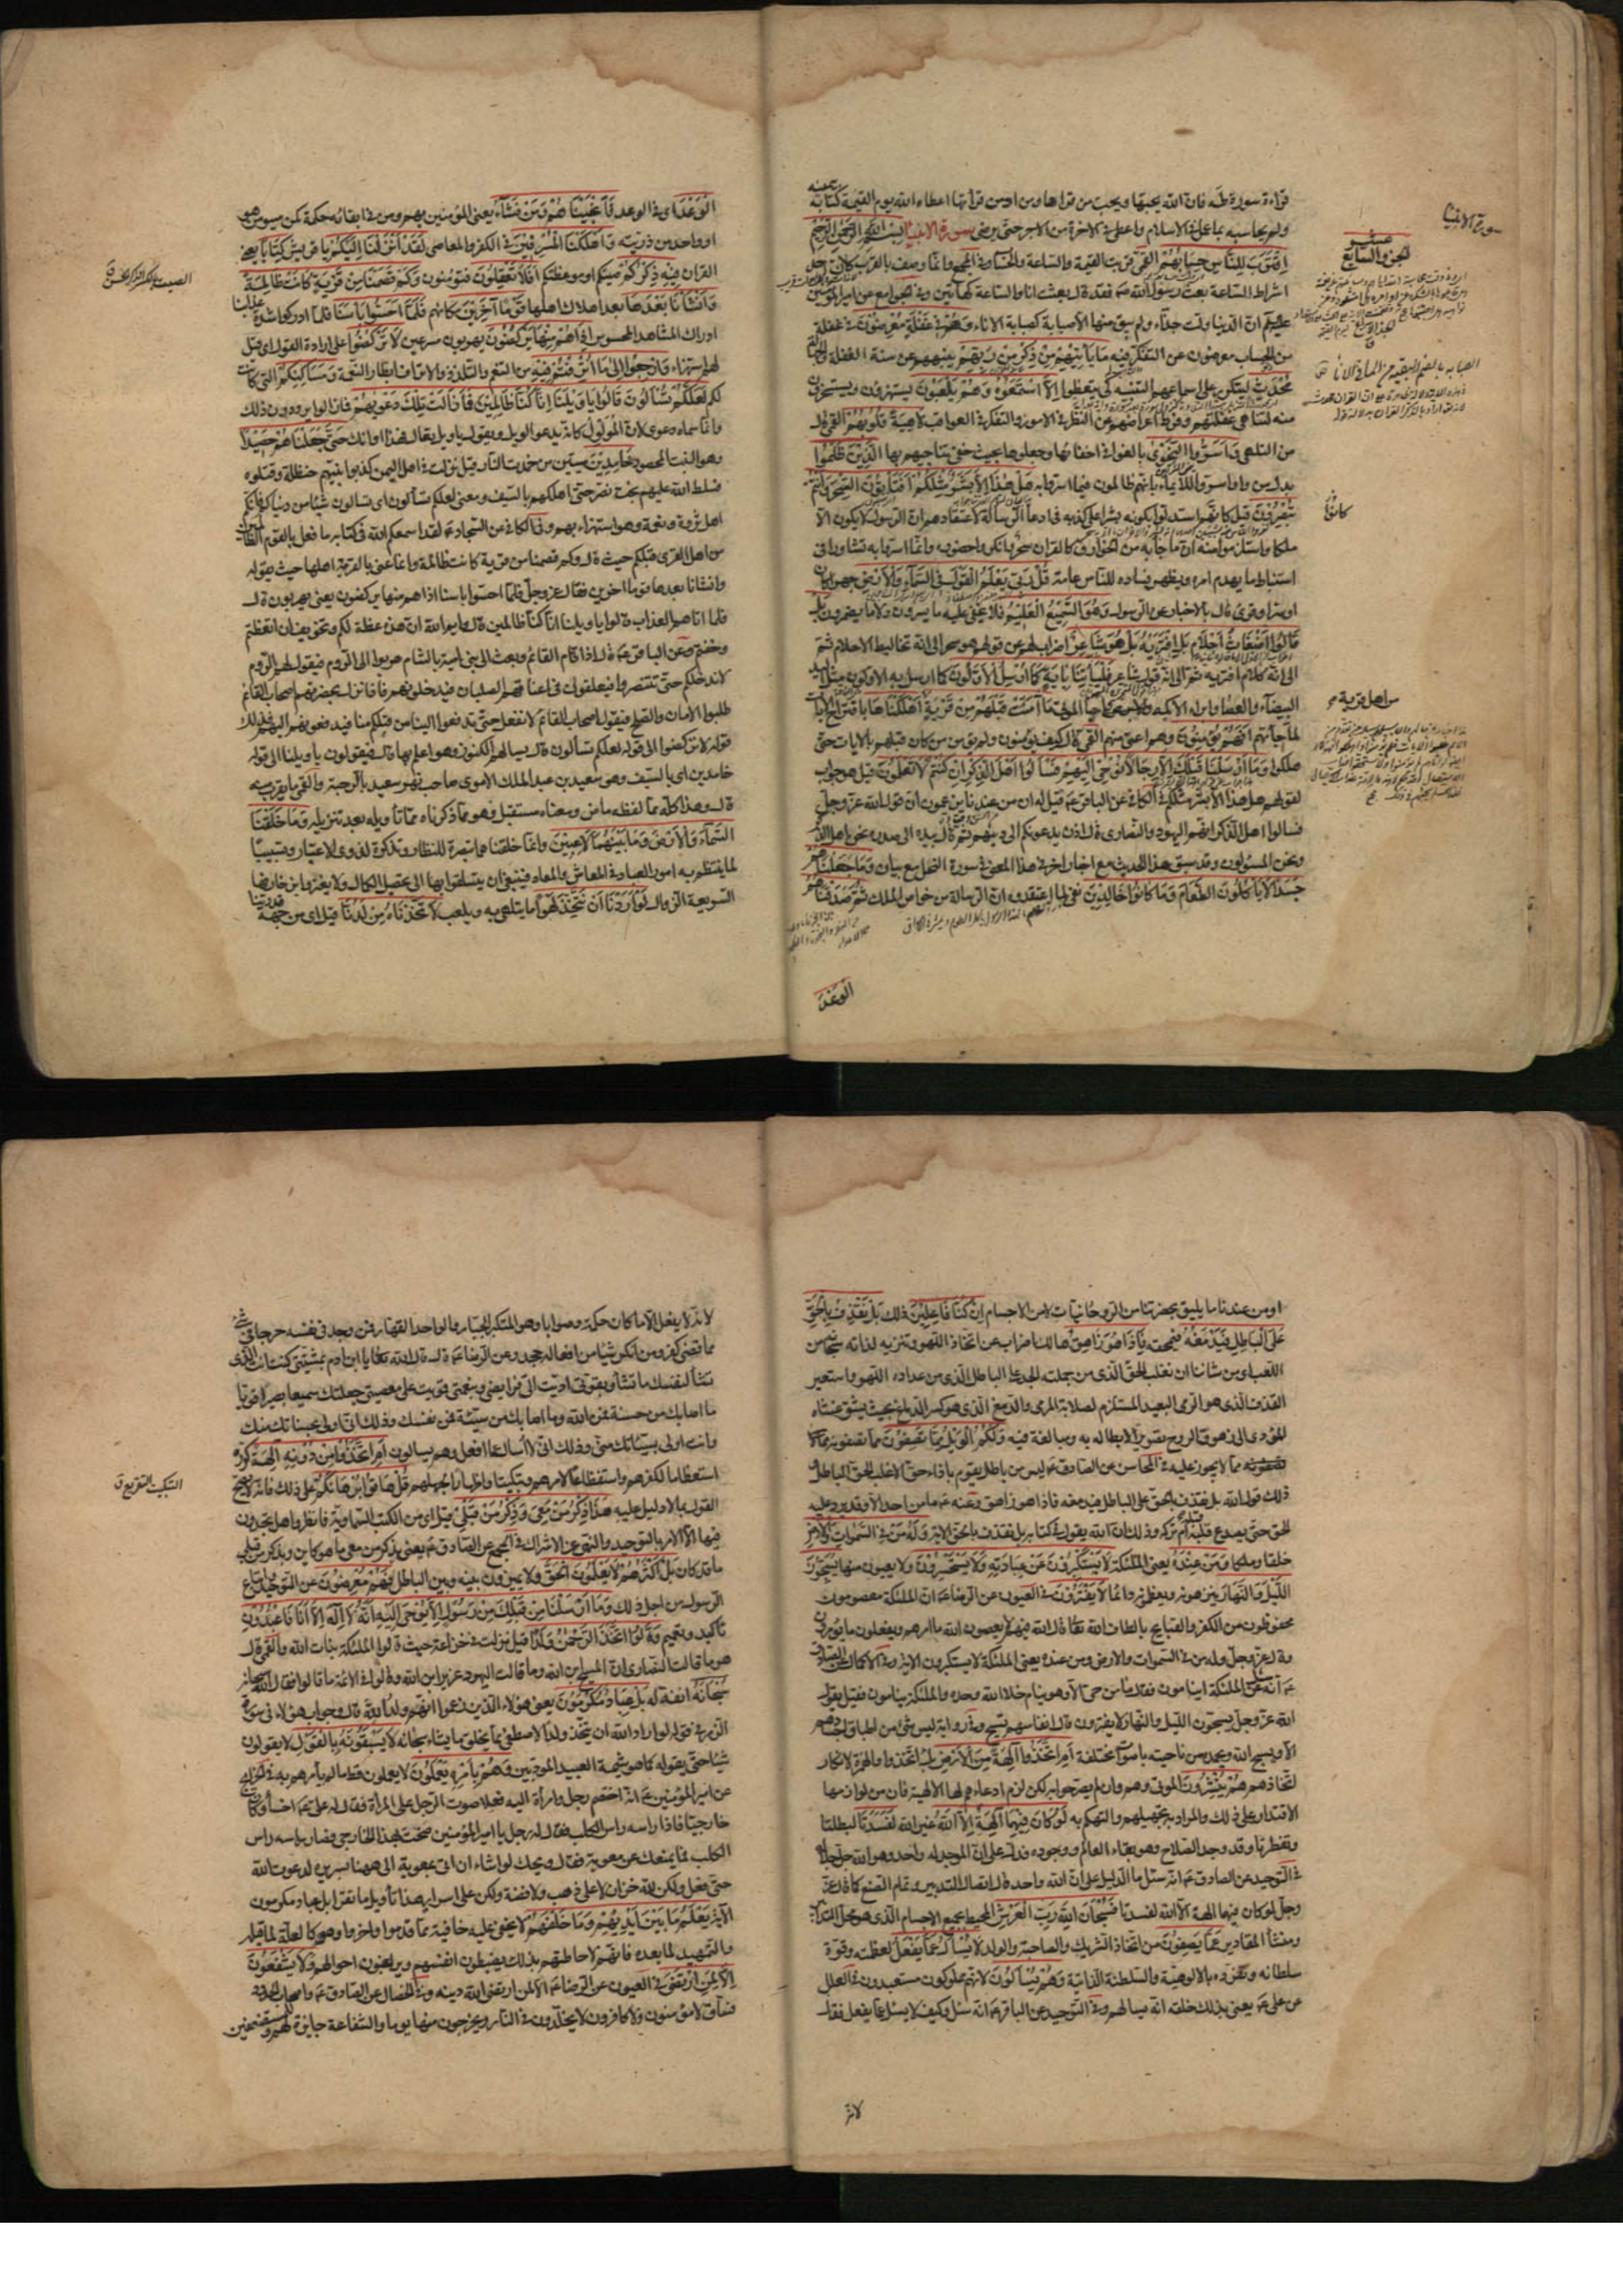 سورة الانبيا
قراءة سورة طه فان الله يحبها ويحب من قراها ومن ادمن قرأتها اعطاه الله يوم القيمة كتابه بيمينه
ولم يحاسبه بما عمل في الاسلام واعطى في الاخرة من الاجر حتى يرضى سورة الانبيا بسم الله الرحمن الرحيم
اقترب للناس حسابهم القمي قربت القيمة والساعة والحساب وفي المجمع وانما وصف بالقرب لان احد
اشراط الساعة بعث رسول الله ص فقد قال بعثت انا والساعة كهاتين وفي الجوامع عن امير المؤمنين
عليهم ان الدنيا ولت حذاء ولم يبق منها الا صبابة كصبابة الاناء وهم في غفلة معرضون في غفلة
من الحساب معرضون عن التفكر فيه ما يأتيهم من ذكر من ربهم ينبههم عن سنة الغفلة والجهالة
محدث ليتكرر على اسماعهم التنبيه كي يتعظوا الا استمعوه وهم يلعبون يستهزؤن ويستسخرون
منه لتناهي غفلتهم وفرط اعراضهم عن النظر في الامور والتفكر في العواقب لاهية قلوبهم القمي قال
من التلهي واسروا النجوى بالغوا في اخفائها وجعلوها بحيث خفي تناجيهم بها الذين ظلموا
بدل من واو اسروا للايماء بانهم ظالمون فيما اسروا به هل هذا الا بشر مثلكم افتأتون السحر وانتم
تبصرون قيل كانهم استدلوا بكونه بشرا على كذبه في ادعاء الرسالة لاعتقادهم ان الرسول لا يكون الا
ملكا واستلزموا منه ان ما جاء به من الخوارق كالقران سحر فانكروا حضوره وانما اسروا به تشاورا في
استنباط ما يهدم امره ويظهر فساده للناس عامة قل ربي يعلم القول في السماء والارض جهرا كان
او سرا وقرئ قال بالاخبار عن الرسول وهو السميع العليم فلا يخفى عليه ما يسرون ولا ما يضمرون بل
قالوا اضغاث احلام بل افتريه بل هو شاعر اضراب لهم عن قولهم هو سحر الى انه تخاليط الاحلام ثم
الى انه كلام افتريه ثم الى انه قول شاعر فليأتنا باية كما ارسل الاولون كما ارسل به الاولون مثل اليد
البيضاء والعصا وابراء الاكمه واحياء الموتى ما آمنت قبلهم من قرية اهلكناها باقتراح الايات
لما جاءتهم افهم يؤمنون وهم اعتى منهم القمي قال كيف يؤمنون ولم يؤمن من كان قبلهم بالايات حتى
هلكوا وما ارسلنا قبلك الا رجالا نوحي اليهم فسألوا اهل الذكر ان كنتم لا تعلمون قيل هو جواب
لقولهم هل هذا الا بشر مثلكم في الكافي عن الباقر ع قيل له ان من عندنا يزعمون ان قول الله عز وجل
فسألوا اهل الذكر انهم اليهود والنصارى قال اذن يدعونكم الى دينهم ثم قال بيده الى صدره نحن اهل الذكر
ونحن المسئولون وقد سبق هذا الحديث مع اخبار اخر في هذا المعنى في سورة النحل مع بيان وما جعلناهم
جسدا لا يأكلون الطعام وما كانوا خالدين نفي لما اعتقدوه ان الرسالة من خواص الملك ثم صدقناهم
الوعد
الوعد اي في الوعد فانجيناهم ومن نشاء يعني المؤمنين بهم ومن في ابقائه حكمة كمن سيؤمن هو
او واحد من ذريته واهلكنا المسرفين في الكفر والمعاصي لقد انزلنا اليكم يا قريش كتابا يعني
القران فيه ذكركم صيتكم او موعظتكم افلا تعقلون فتؤمنون وكم قصمنا من قرية كانت ظالمة
وانشأنا بعدها بعد اهلاك اهلها قوما آخرين مكانهم فلما احسوا بأسنا فلما ادركوا شدة عذابنا
ادراك المشاهد المحسوس اذا هم منها يركضون يهربون مسرعين لا تركضوا على ارادة القول اي قيل
لهم استهزاء وارجعوا الى ما اترفتم فيه من التنعم والتلذذ والاتراف ابطار النعمة ومساكنكم التي كانت
لكم لعلكم تسألون قالوا يا ويلنا انا كنا ظالمين فما زالت تلك دعويهم فما زالوا يرددون ذلك
وانما سماه دعوى لان المولول كانه يدعو الويل ويقول يا ويل تعال فهذا اوانك حتى جعلناهم حصيدا
وهو النبت المحصود خامدين ميتين من خمدت النار قيل نزلت في اهل اليمن كذبوا نبيهم حنظلة وقتلوه
فسلط الله عليهم بخت نصر حتى اهلكهم بالسيف ومعنى لعلكم تسألون اي تسألون شيئا من دنياكم فانكم
اهل ثروة ونعمة وهو استهزاء بهم وفي الكافي عن السجاد ع لقد اسمعكم الله في كتابه ما فعل بالقوم الظالمين
من اهل القرى قبلكم حيث قال وكم قصمنا من قرية كانت ظالمة وانما عنى بالقرية اهلها حيث يقول
وانشانا بعدها قوما اخرين فقال عز وجل فلما احسوا باسنا اذا هم منها يركضون يعني يهربون قال
فلما اتاهم العذاب قالوا يا ويلنا انا كنا ظالمين قال وايم الله ان هذه عظة لكم وتخويف ان اتعظتم
وخفتم وعن الباقر ع قال اذا قام القائم وبعث الى بني امية بالشام هربوا الى الروم فيقول لهم الروم
لا ندخلكم حتى تتنصروا فيعلقون في اعناقهم الصلبان فيدخلونهم فاذا نزل بحضرتهم اصحاب القائم
طلبوا الامان والصلح فيقول اصحاب القائم لا نفعل حتى تدفعوا الينا من قبلكم منا فيدفعونهم اليهم فذلك
قوله لا تركضوا الى قوله لعلكم تسألون قال يسألهم الكنوز وهو اعلم بها قال فيقولون يا ويلنا الى قوله
خامدين اي بالسيف وهو سعيد بن عبد الملك الاموي صاحب نهر سعيد بالرحبة والقمي ما يقرب منه
قال وهذا كله مما لفظه ماض ومعناه مستقبل وهو مما ذكرناه مما تأويله بعد تنزيله وما خلقنا
السماء والارض وما بينهما لاعبين وانما خلقناهما تبصرة للنظار وتذكرة لذوي الاعتبار وتسبيبا
لما ينتظم به امور العباد في المعاش والمعاد فينبغي ان يتسلقوا بها الى تحصيل الكمال ولا يغتروا بزخارفها
السريعة الزوال لو اردنا ان نتخذ لهوا ما يتلهى به ويلعب لاتخذناه من لدنا قيل اي من جهة قدرتنا
او من عندنا ما يليق بحضرتنا من الروحانيات لا من الاجسام ان كنا فاعلين ذلك بل نقذف بالحق
على الباطل فيدمغه فيمحقه فاذا هو زاهق هالك اضراب عن اتخاذ اللهو وتنزيه لذاته سبحانه من
اللعب اي من شاننا ان نغلب الحق الذي من جملته الجد على الباطل الذي من عداده اللهو واستعير
القذف الذي هو الرمي البعيد المستلزم لصلابة المرمى والدمغ الذي هو كسر الدماغ بحيث يشق غشاءه
المؤدي الى زهوق الروح تصويرا لابطاله به ومبالغة فيه ولكم الويل مما تصفون مما تصفونه به
مما لا يجوز عليه في المحاسن عن الصادق ع ليس من باطل يقوم بازاء حق الا غلب الحق الباطل و
ذلك قول الله بل نقذف بالحق على الباطل فيدمغه فاذا هو زاهق وعنه ع ما من احد الا وقد يرد عليه
الحق حتى يصدع قلبه قبله ام تركه وذلك ان الله يقول في كتابه بل نقذف بالحق الاية وله من في السموات والارض
خلقا وملكا ومن عنده يعني الملئكة لا يستكبرون عن عبادته ولا يستحسرون ولا يعيون منها يسبحون
الليل والنهار ينزهونه ويعظمونه دائما لا يفترون في العيون عن الرضا ع ان الملئكة معصومون
محفوظون من الكفر والقبايح بالطاف الله تعالى قال الله فيهم لا يعصون الله ما امرهم ويفعلون ما يؤمرون
وقال عز وجل وله من في السموات والارض ومن عنده يعني الملئكة لا يستكبرون الاية وفي الاكمال عن الصادق
ع انه سئل عن الملئكة اينامون فقال ما من حي الا وهو ينام خلا الله وحده والملئكة ينامون فقيل يقول
الله عز وجل يسبحون الليل والنهار لا يفترون قال انفاسهم تسبيح وفي رواية ليس شئ من اطباق اجسادهم
الا ويسبح الله ويحمده من ناحيته باصوات مختلفة ام اتخذوا آلهة من الارض بل اتخذوا والهمزة لانكار
اتخاذهم هم ينشرون الموتى وهم وان لم يصرحوا به لكن لزم ادعاءهم لها الالهية فان من لوازمها
الاقتدار على ذلك والمراد به تجهيلهم والتهكم بهم لو كان فيهما آلهة الا الله غير الله لفسدتا لبطلتا
وتفطرتا وقد وجد الصلاح وهو بقاء العالم ووجوده فدل على ان الموجد له واحد وهو الله جل جلاله
في التوحيد عن الصادق ع انه سئل ما الدليل على ان الله واحد قال اتصال التدبير وتمام الصنع كما قال عز
وجل لو كان فيهما الهة الا الله لفسدتا فسبحان الله رب العرش المحيط بجميع الاجسام الذي هو محل التدابير
ومنشأ المقادير عما يصفون من اتخاذ الشريك والصاحبة والولد لا يسأل عما يفعل لعظمته وقوة
سلطانه وتفرده بالالوهية والسلطنة الذاتية وهم يسألون لانهم مملوكون مستعبدون في العلل
عن علي ع يعني بذلك خلقه انه يسألهم وفي التوحيد عن الباقر ع انه سئل وكيف لا يسئل عما يفعل فقال
لانه
لانه لا يفعل الا ما كان حكمة وصوابا وهو المتكبر الجبار والواحد القهار فمن وجد في نفسه حرجا في شئ
مما قضى كفر ومن انكر شيئا من افعاله جحد وعن الرضا ع قال قال الله تعالى يا ابن ادم بمشيتي كنت انت الذي
تشأ لنفسك ما تشأ وبقوتي اديت الي فرايضي وبنعمتي قويت على معصيتي جعلتك سميعا بصيرا قويا
ما اصابك من حسنة فمن الله وما اصابك من سيئة فمن نفسك وذلك اني اولى بحسناتك منك
وانت اولى بسيئاتك مني وذلك اني لا اسأل عما افعل وهم يسألون ام اتخذوا من دونه الهة كرره
استعظاما لكفرهم واستفظاعا لامرهم وتبكيتا واظهارا لجهلهم قل هاتوا برهانكم على ذلك فانه لا يصح
القول بما لا دليل عليه هذا ذكر من معي وذكر من قبلي اي من الكتب السماوية فانظروا هل تجدون
فيها الا الامر بالتوحيد والنهي عن الاشراك في المجمع عن الصادق ع يعني بذكر من معي ما هو كاين وبذكر من قبلي
ما قد كان بل اكثرهم لا يعلمون الحق ولا يميزون بينه وبين الباطل فهم معرضون عن التوحيد واتباع
الرسول من اجل ذلك وما ارسلنا من قبلك من رسول الا نوحي اليه انه لا اله الا انا فاعبدون
تأكيد وتعميم وقالوا اتخذ الرحمن ولدا قيل نزلت في خزاعة حيث قالوا الملئكة بنات الله والقمي قال
هو ما قالت النصارى ان المسيح ابن الله وما قالت اليهود عزير ابن الله وقالوا في الائمة ما قالوا فقال الله
سبحانه انفة له بل عباد مكرمون يعني هؤلاء الذين زعموا انهم ولد الله قال وجواب هؤلاء في سورة
الزمر في قوله لو اراد الله ان يتخذ ولدا لاصطفى مما يخلق ما يشاء سبحانه لا يسبقونه بالقول لا يقولون
شيئا حتى يقوله كما هو شيمة العبيد المؤدبين وهم بامره يعملون لا يعملون قط ما لم يأمرهم به
عن امير المؤمنين ع انه اختصم رجل وامرأة اليه فعلا صوت الرجل على المرأة فقال له علي ع اخسأ وكان
خارجيا فاذا راسه راس الكلب فقال له رجل يا امير المؤمنين صحت بهذا الخارجي فصار راسه راس
الكلب فما يمنعك عن معوية فقال ويحك لو اشاء ان اتي بمعوية الى ههنا بسريره لدعوت الله
حتى فعل ولكن لله خزان لا على ذهب ولا فضة ولكن على اسرار هذا تأويل ما تقرأ بل عباد مكرمون
الاية يعلم ما بين ايديهم وما خلفهم لا يخفى عليه خافية مما قدموا واخروا وهو كالعلة لما قبله
والتمهيد لما بعده فانهم لاحاطتهم بذلك يضبطون انفسهم ويراقبون احوالهم ولا يشفعون
الا لمن ارتضى في العيون عن الرضا ع الا لمن ارتضى الله دينه وفي الخصال عن الصادق ع واصحاب الحدود
فساق لا مؤمنون ولا كافرون لا يخلدون في النار ويخرجون منها يوما والشفاعة جايزة لهم وللمستضعفين